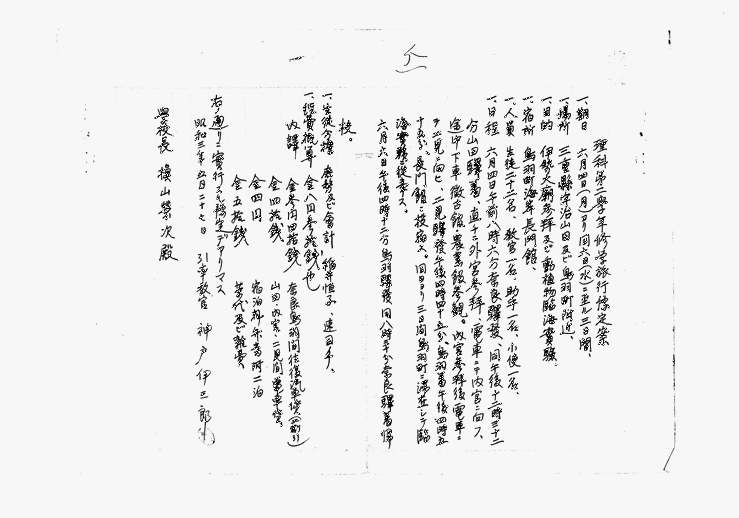 理科第二學年修学旅行豫定案
一、期日 六月四日(月)ヨリ同六日(水)ニ至ル三日間、
一、場所 三重縣宇治山田及ビ鳥羽町附近、
一、目的 伊勢大廟參拜及ビ動植物臨海實驗、
一、宿所 鳥羽町海岸長門館、
一、人員 生徒二十二名、教官一名、助手一名、小使一名、
一、日程 六月四日午前八時六分奈良驛發、同午後十二時三十二
分山田驛着、直チニ外宮參拜、電車ニテ内宮ニ向フ、
途中下車、徴古館、農業館參観、内宮參拜後電車ニ
テ二見ニ向ヒ、二見驛發午後四時四十五分、鳥羽着午後四時五
十五分、長門館ニ投宿ス。同日ヨリ三日間鳥羽町ニ滞在シテ臨
海實驗ニ從事ス。
六月六日午後四時十二分鳥羽驛發同八時五分奈良驛着帰
校。
一、生徒分擔 庶務及ビ會計、
一、経費概算 金八円参拾銭也
内譯 金参円四拾銭 奈良鳥羽間往復汽車賃(割引)
金四拾銭 山田、内宮、二見間電車賃、
金四円 宿泊料午食附二泊
金五拾銭 茶代及ビ雜費、
右ノ通リニ實行スル豫定デアリマス
昭和三年五月二十七日 引率教官 神戸伊三郎
學校長 槇山榮次殿